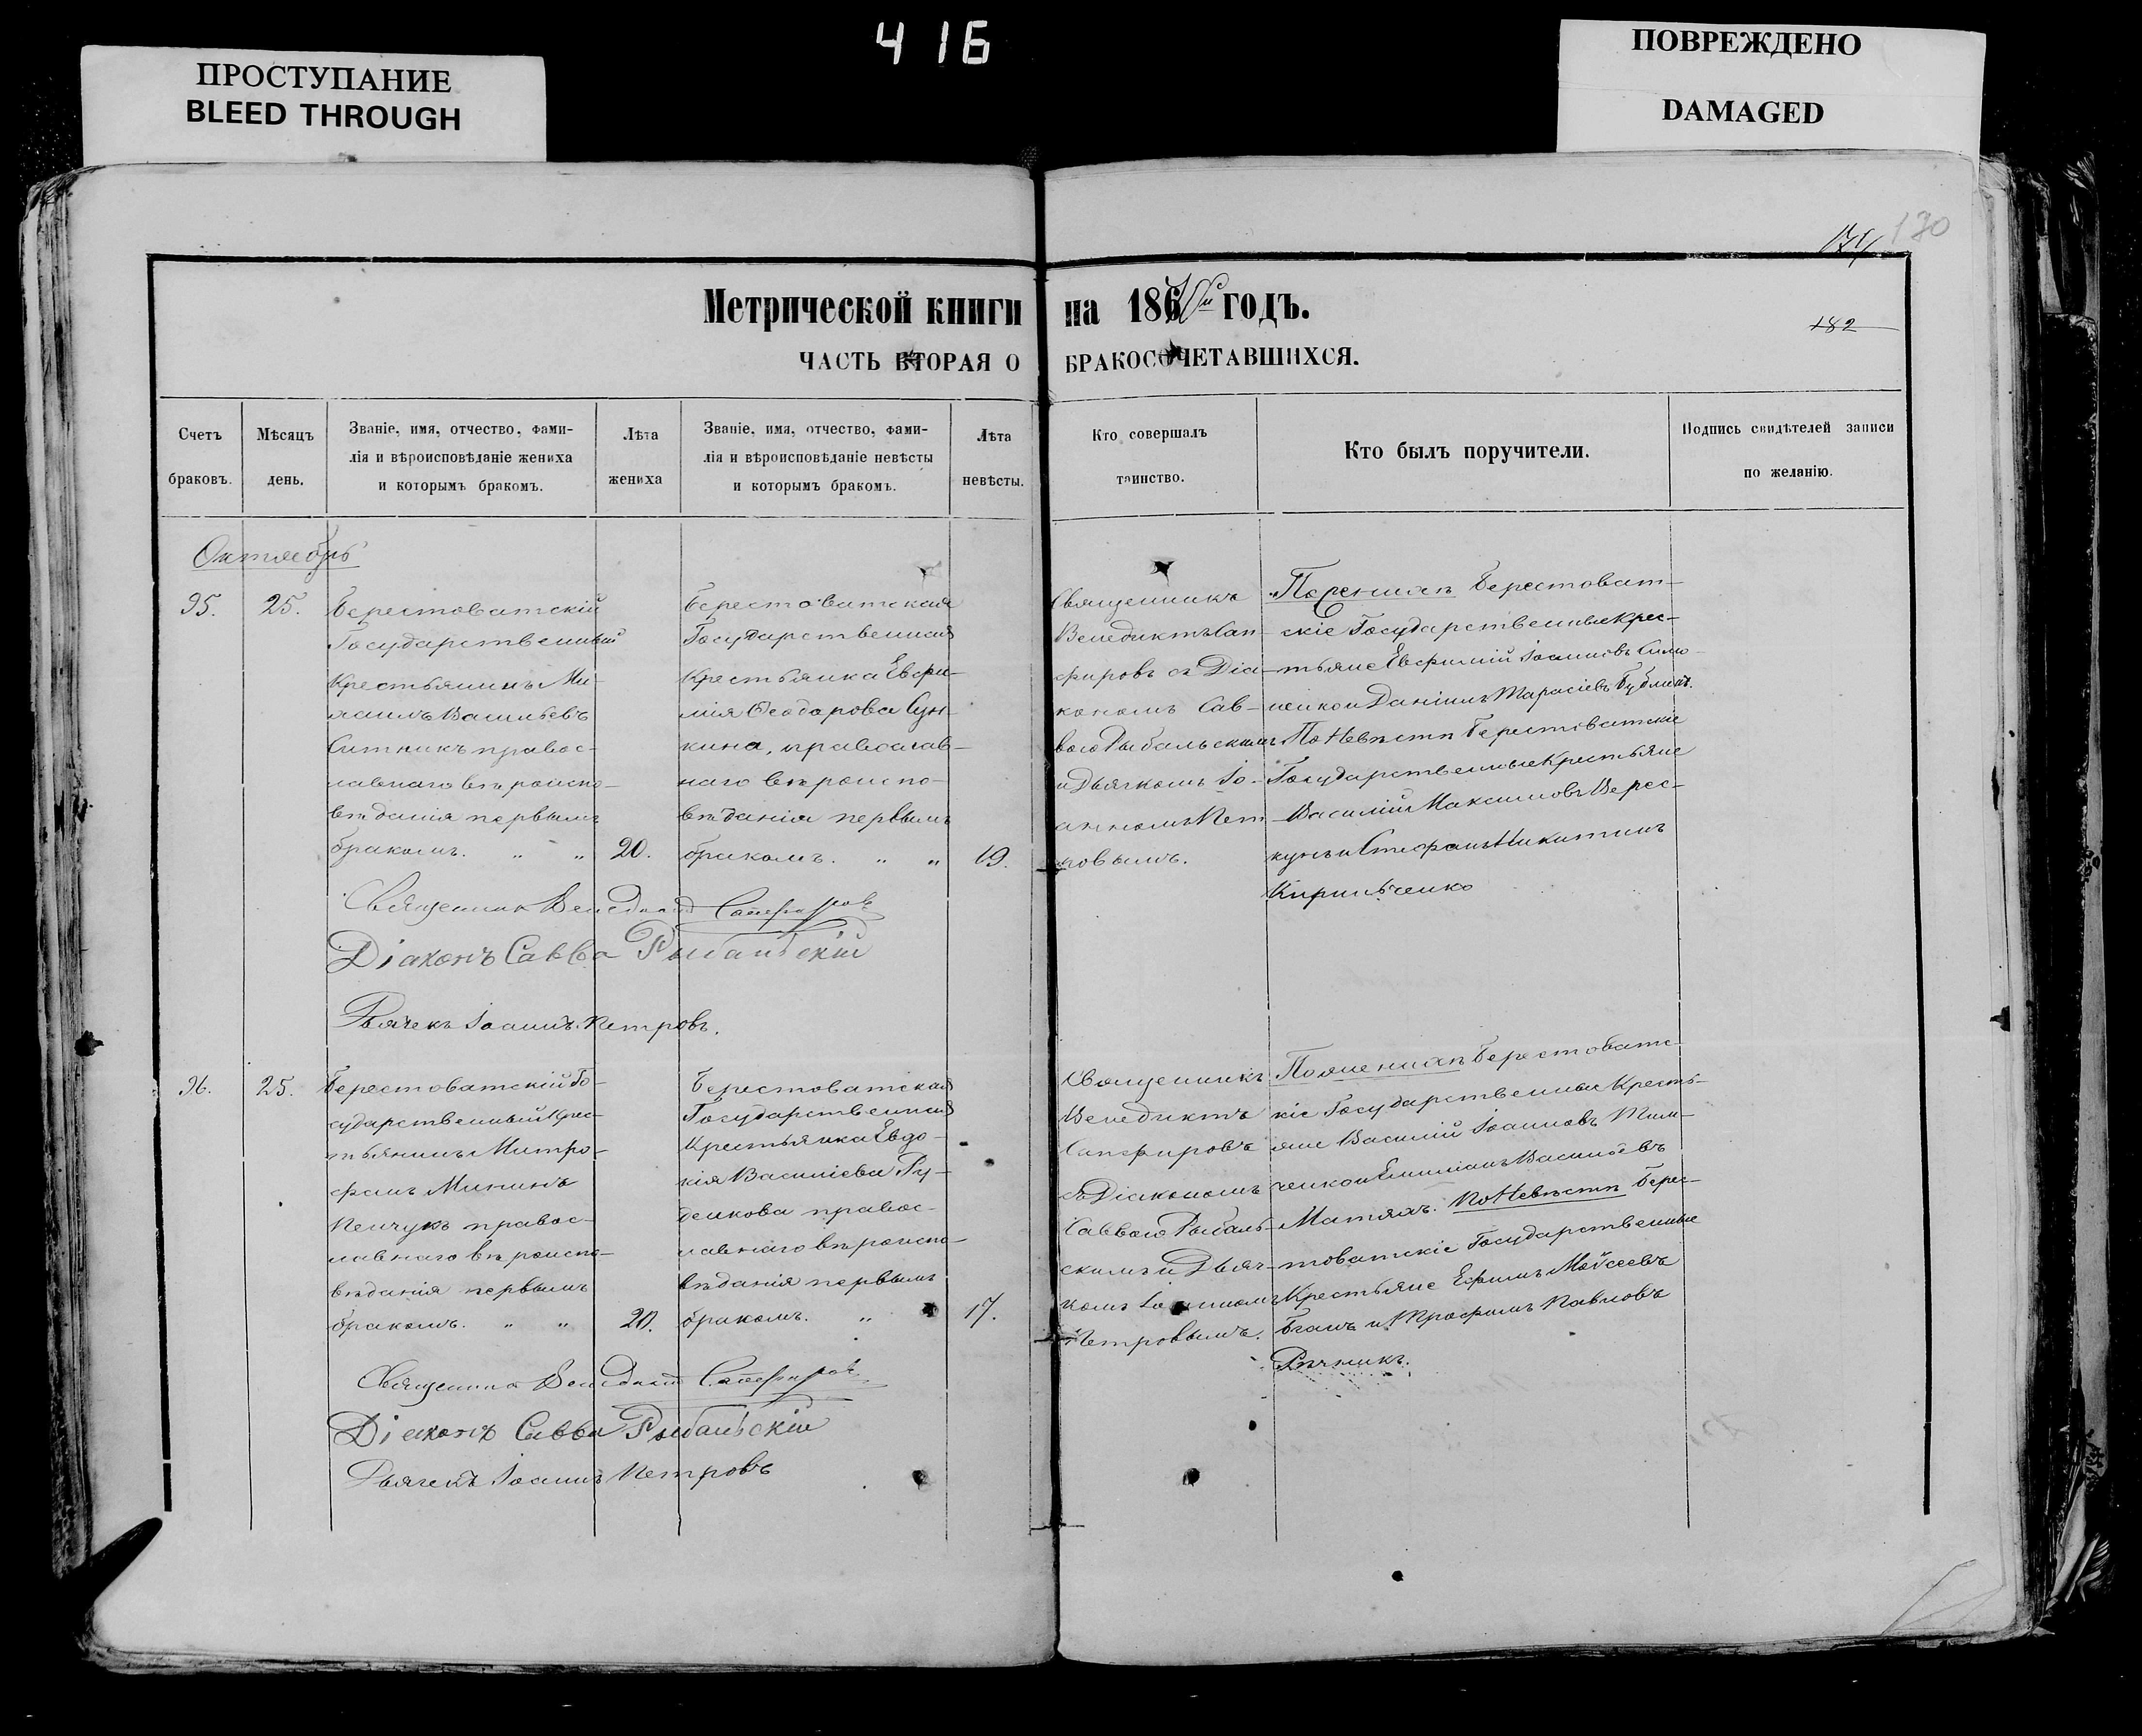 416
ПРОСТУПАНИЕ
BLEED THROUGH
ПОВРЕЖДЕНО
DAMAGED
130
182
Метрической книги на 186 годъ.
ЧАСТЬ ВТОРАЯ О БРАКОСОЧЕТАВШИХСЯ.
Счетъ браковъ.
Мѣсяцъ день.
Званіе, имя, отчество, фами-
лія и вѣроисповѣданіе жениха
и которымъ бракомъ.
Лѣта жениха
Званіе, имя, отчество, фами-
лія и вѣроисповѣданіе невѣсты
и которымъ бракомъ.
Лѣта невѣсты.
Кто совершалъ
таинство.
Кто былъ поручители.
Подпись свидѣтелей записи
по желанію.
Октябрь
95.
25.
Берестоватскій
Государственный
Крестьянинъ Ми-
хаилъ Васильевъ
Ситникъ правос-
лавнаго вѣроиспо-
вѣданія первымъ
бракомъ. „ „
20.
Берестоватская
Государственная
Крестьянка Евфи-
мія Ѳеодорова Сун-
кина, православ-
наго вѣроиспо-
вѣданія первымъ
бракомъ. „ „
19.
Священникъ
Венедиктъ Сап-
фировъ съ Діа-
кономъ Сав-
вою Рыбальскимъ
и Дьячкомъ Іо-
анномъ Пет-
ровымъ.
Берестоват-
скіе Государственные Крес-
тьяне Евфимій Іоанновъ Симо-
ненко и Даніилъ Тарасіевъ Бубликъ.
По Невѣстѣ Берестоватскіе
Государственные Крестьяне
Василій Максимовъ Верес-
кунъ и Стефанъ Никитинъ
Кирильченко
Священникъ Венедиктъ Сапфировъ
Діаконъ Савва Рыбальскій
Дьячекъ Іоаннъ Петровъ.
96.
25.
Берестоватскій Го-
сударственный Крес-
тьянинъ Митро-
фанъ Мининъ
Пенчукъ правос-
лавнаго вѣроиспо-
вѣданія первымъ
бракомъ. „ „
20.
Берестоватская
Государственная
Крестьянка Евдо-
кія Василіева Ру-
денкова правос-
лавнаго вѣроиспо-
вѣданія первымъ
бракомъ. „
17.
Священникъ
Венедиктъ
Сапфировъ
съ Діакономъ
Саввою Рыбаль-
скимъ и Дьяч-
комъ Іоанномъ
Петровымъ.
По женихѣ Берестоватс-
кіе Государственные Кресть-
яне Василій Іоанновъ Тим-
ченко и Емиліанъ Васильевъ
Матяхъ. По Невѣстѣ Берес-
товатскіе Государственные
Крестьяне Ефимъ Моисеевъ
Бганъ и Трофимъ Павловъ
Рѣчникъ.
Священникъ Венедиктъ Сапфировъ
Діаконъ Савва Рыбальскій
Дьячекъ Іоаннъ Петровъ